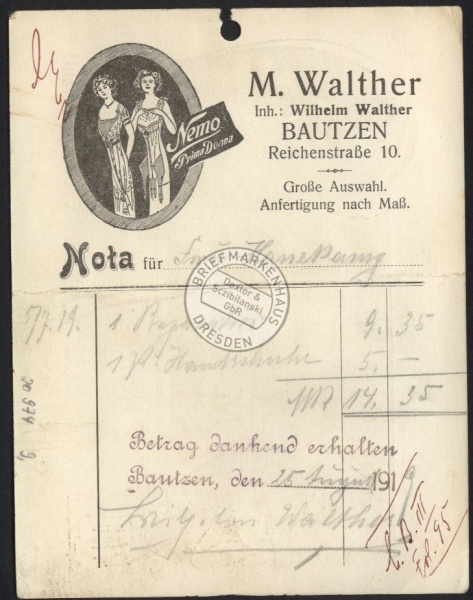 Nemo
Prima Donna
M. Walther
Inh.: Wilhelm Walther
BAUTZEN
Reichenstraße 10.
Große Auswahl.
Anfertigung nach Maß.
Nota für Frau
BRIEFMARKENHAUS
Dextor &
Sczibilanski
GbR
DRESDEN
5/7. 19. 1 9. 35
1 P. Handschuhe 5. –
14. 35
Betrag dankend erhalten
Bautzen, den 25 August 1919
Walther
III
Fol. 95